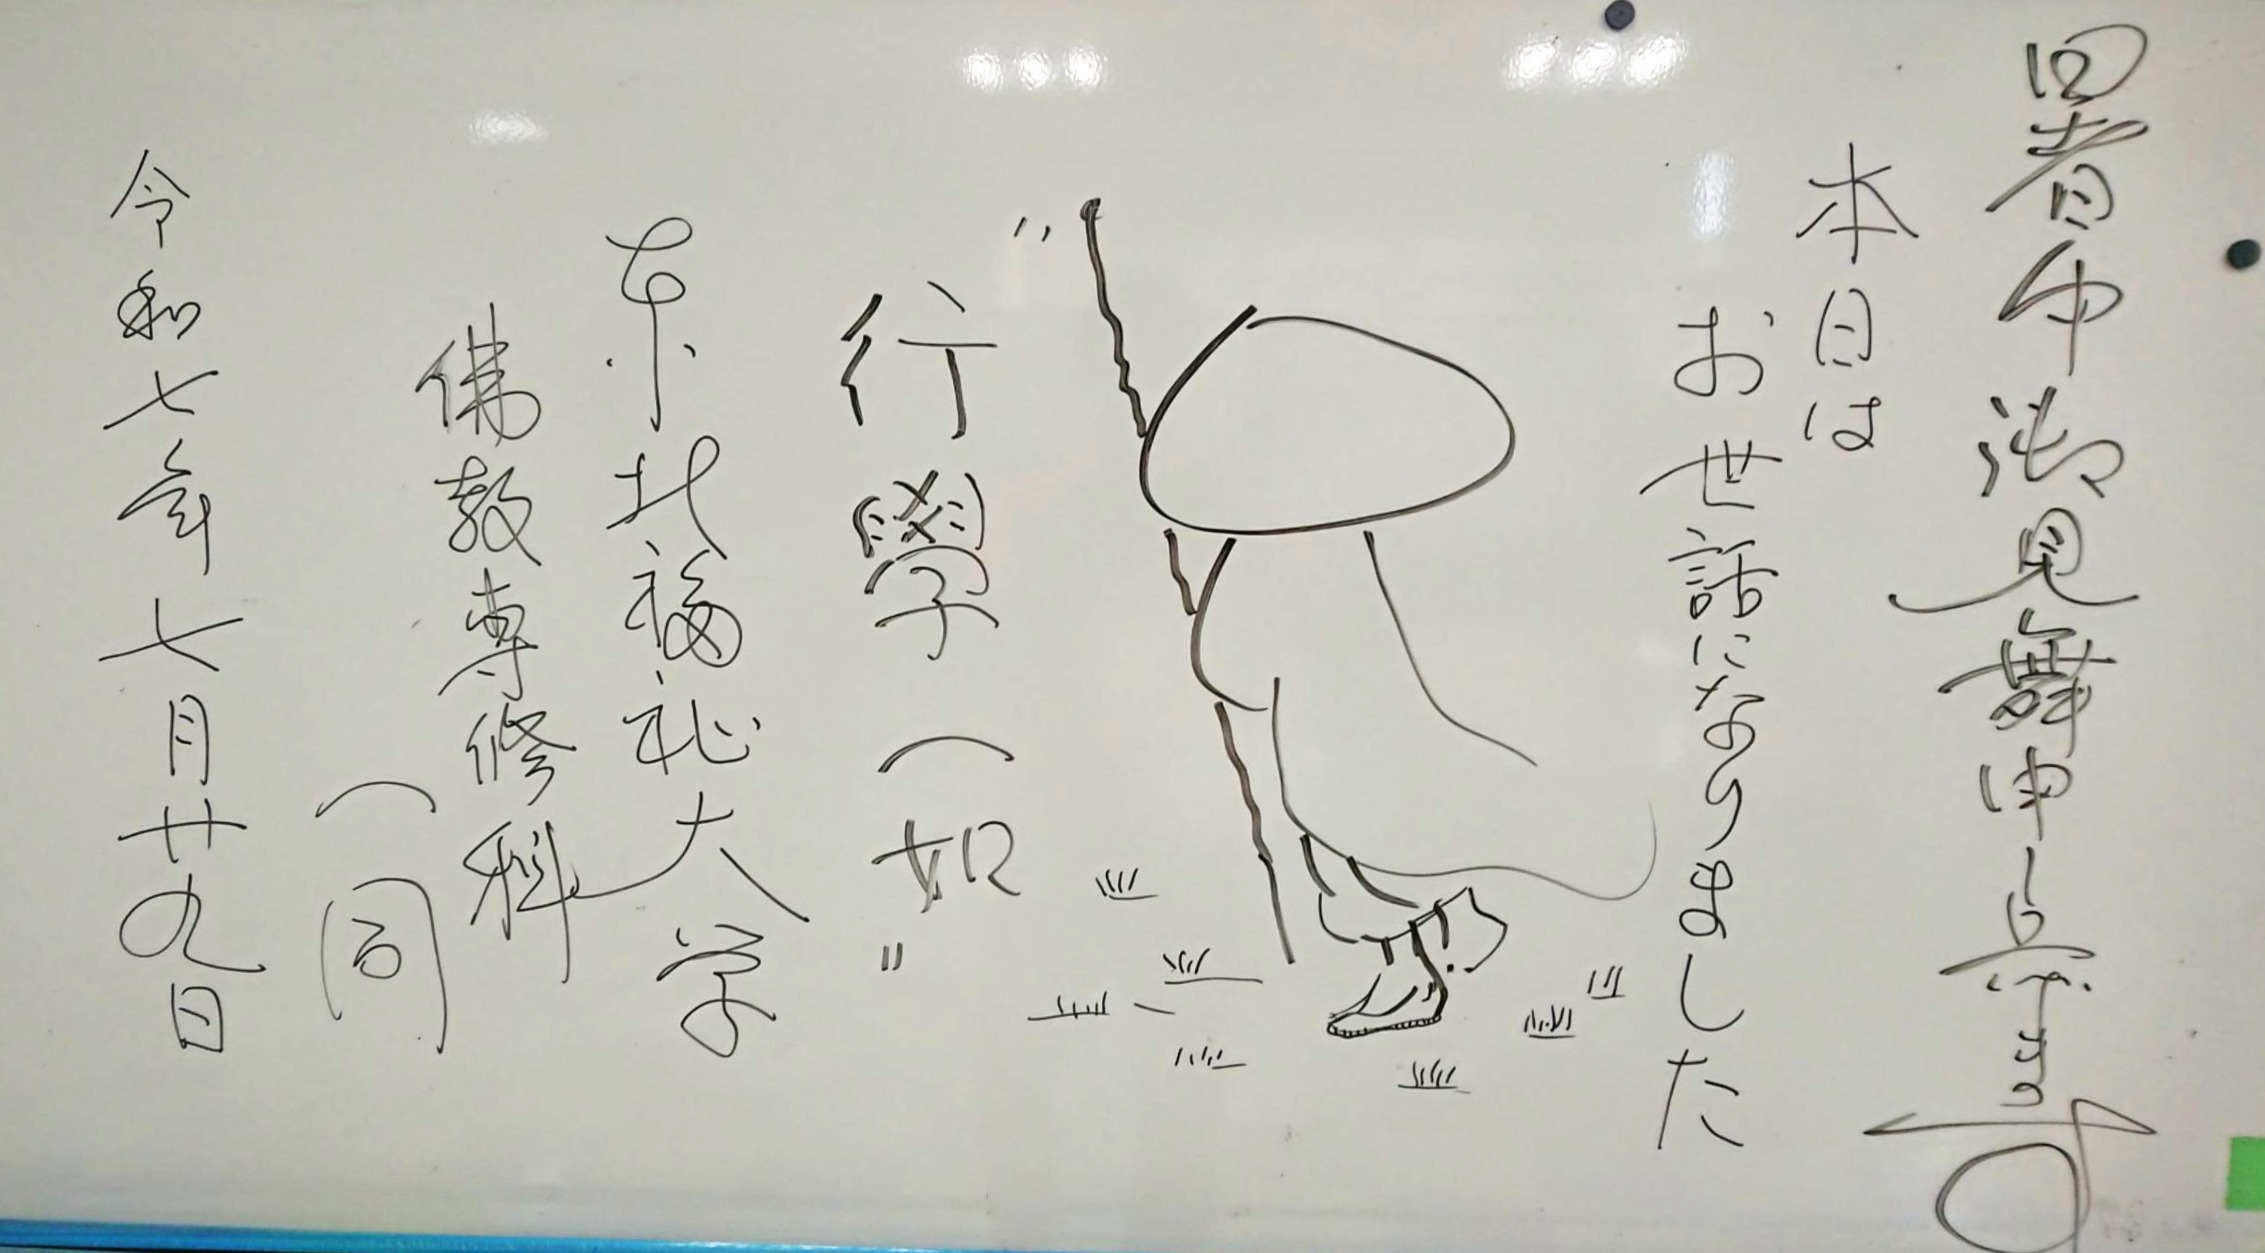 暑中御見舞申し上げます
本日は
お世話になりました
"行學一如"
東北福祉大学
佛教専修科
一同
令和七年七月廿九日